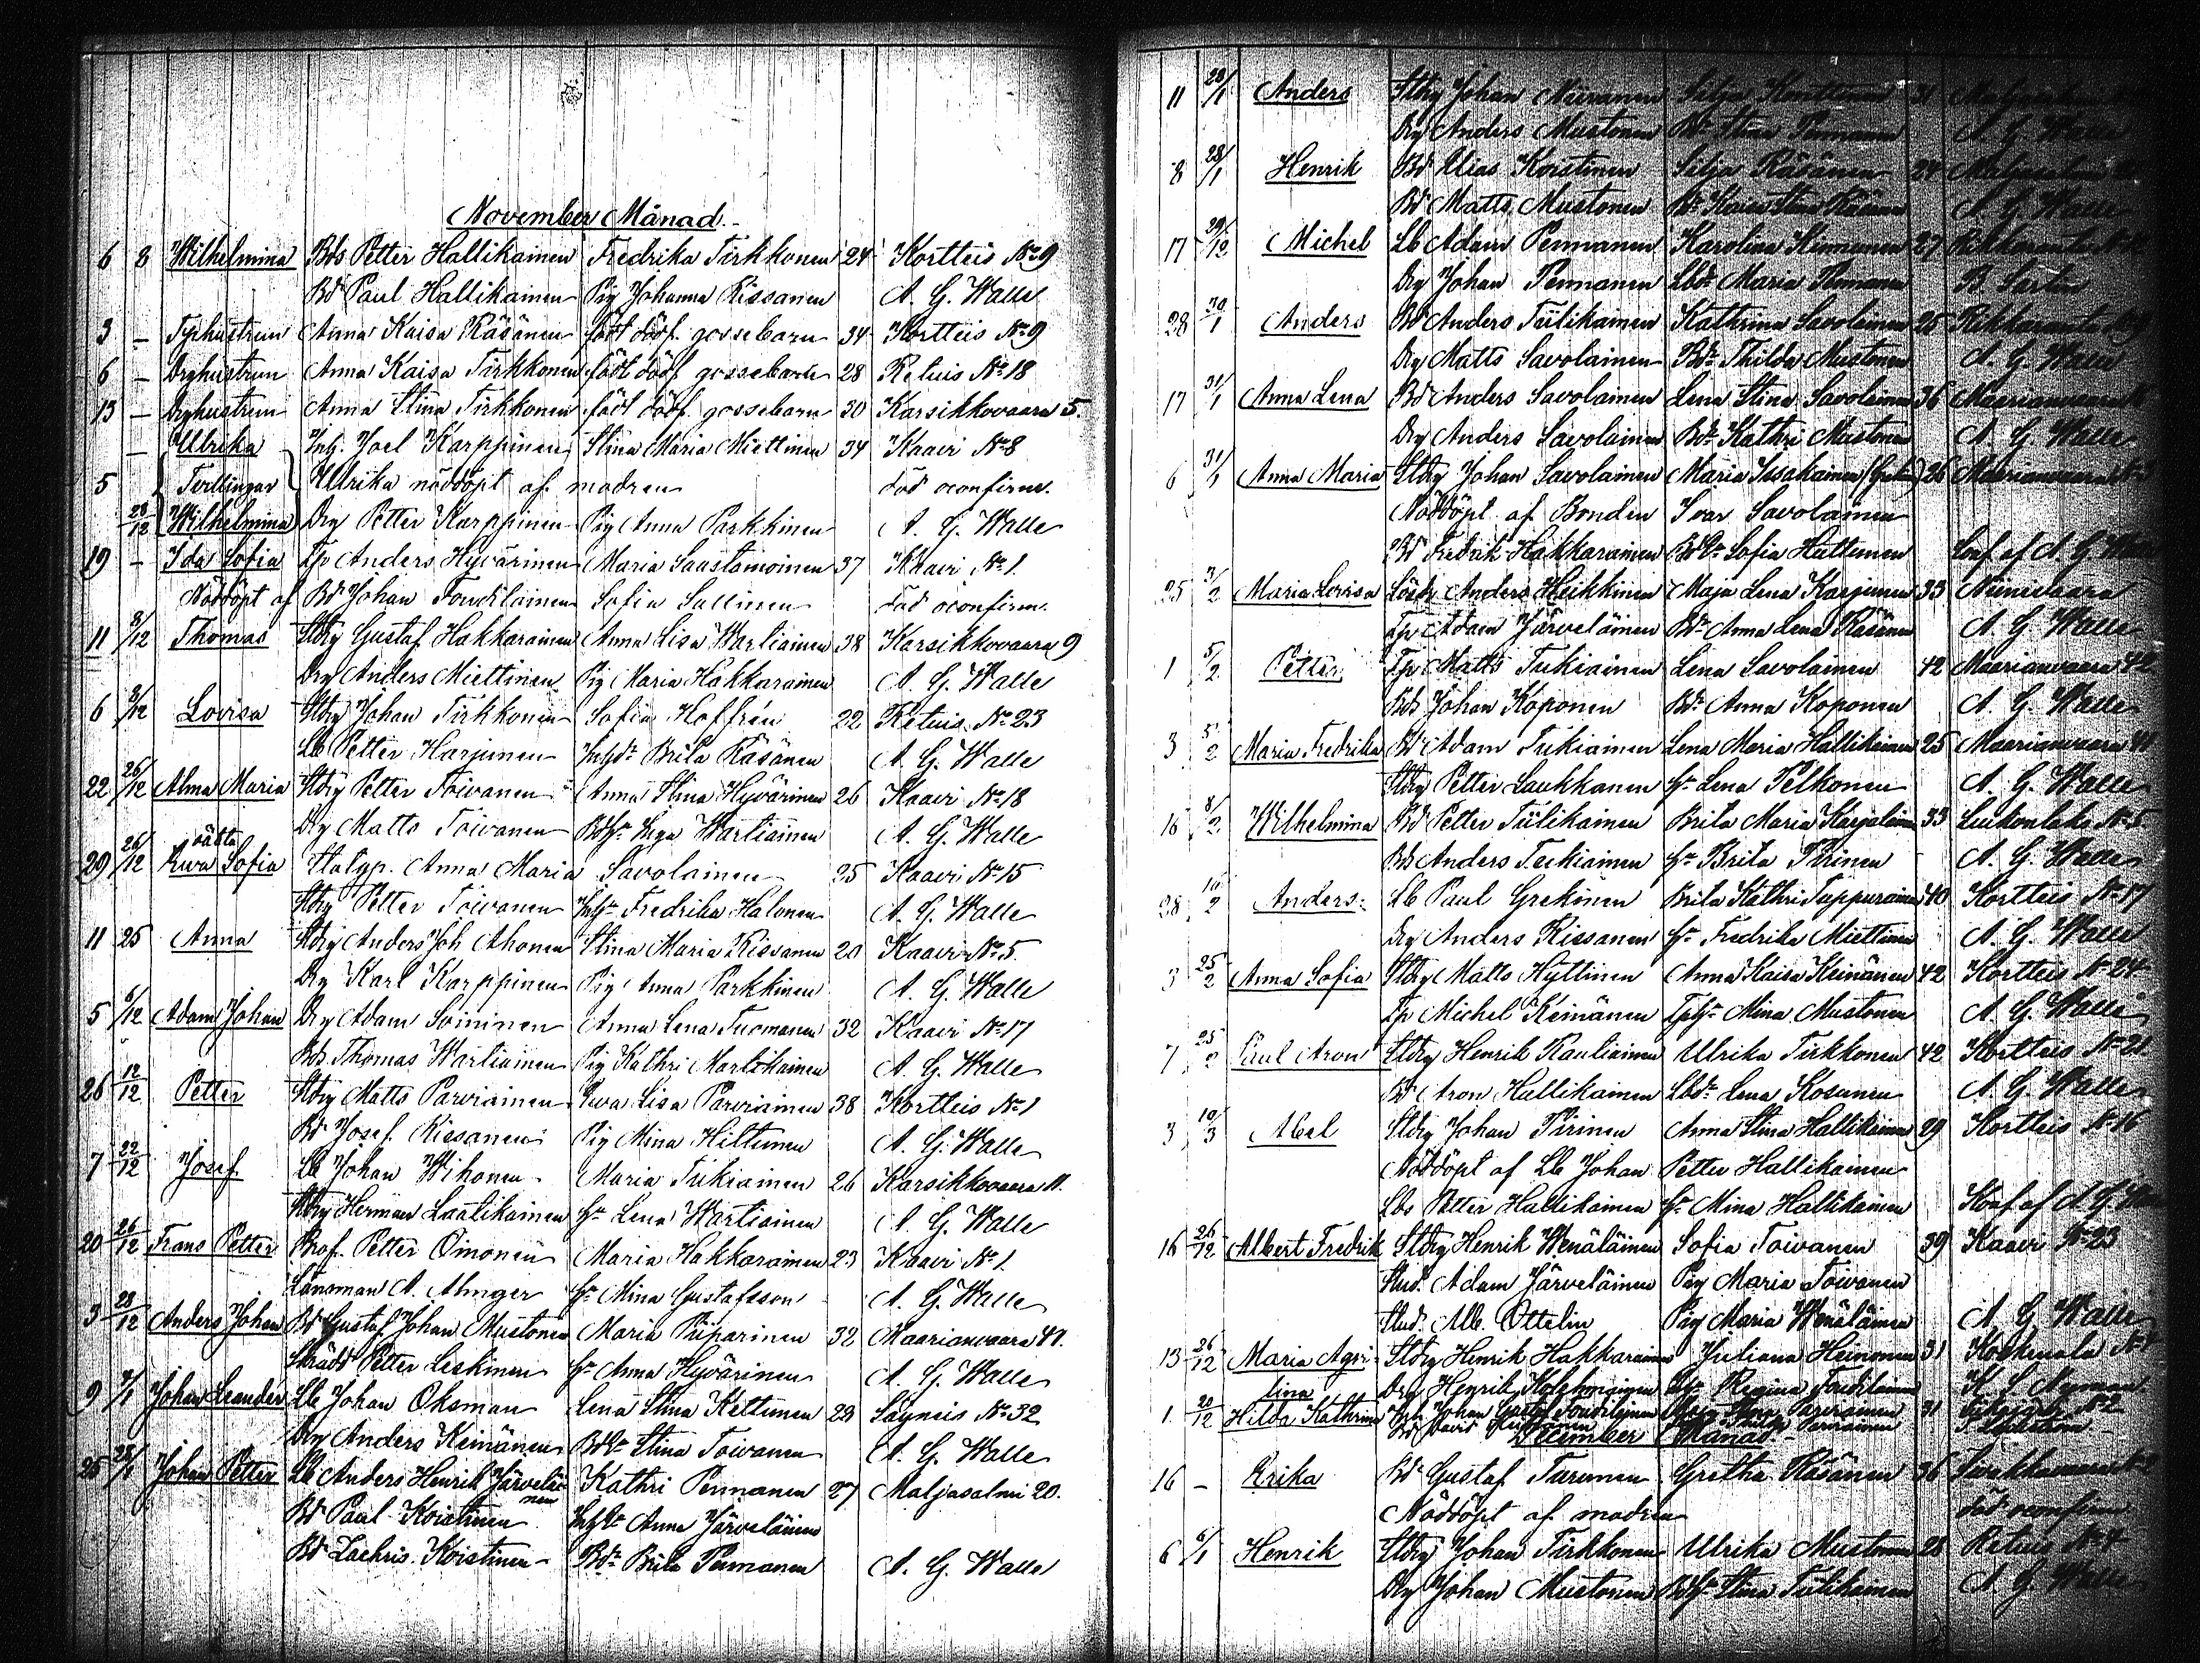 November Månad.
6 8 Wilhelmina Bds Petter Hallikainen Fredrika Tirkkonen 24 Kortteis No 9
Bd Paul Hallikainen Pig Johanna Rissanen A. G. Walle
3 — Tphustrun Anna Kaisa Räsänen födt dödf. gossebarn 34 Kortteis No 9
6 — Drghustrun Anna Kaisa Tirkkonen födt dödf. gossebarn 28 Retuis No 18
13 — Drghustrun Anna Stina Tirkkonen födt dödf. gossebarn 30 Karsikkovaara 5.
— Ulrika Inh. Joel Karppinen Stina Maria Miettinen 34 Kaavi No 8
5 Tvillingar Ulrika nöddöpt af modren död oconfirm.
28/12 Wilhelmina Drg Petter Karppinen Pig Anna Parkkinen A. G. Walle
19 — Ida Sofia Tp Anders Hyvärinen Maria Saastamoinen 37 Kaavi No 1.
Nöddöpt af Bd Johan Toudilainen Sofia Sallinen död oconfirm.
11 3/12 Thomas Stdrg Gustaf Hakkarainen Anna Lisa Wartiainen 38 Karsikkovaara 9
Drg Anders Miettinen Pig Maria Hakkarainen A. G. Walle
6 3/12 Lovisa Stdrg Johan Tirkkonen Sofia Hoffrén 22 Retuis No 23
Lb Petter Harjunen Inhdr Brita Räsänen A. G. Walle
22 26/12 Alma Maria Stdrg Petter Toivanen Anna Stina Hyvärinen 26 Kaavi No 18
Drg Matts Toivanen Bdhr Inga Wartiainen A. G. Walle
oäkta
29 26/12 Ewa Sofia Statp. Anna Maria Savolainen 25 Kaavi No 15
Stdrg Petter Toivanen Inhr Fredrika Halonen A. G. Walle
11 25 Anna Stdrg Anders Joh Ahonen Stina Maria Rissanen 20 Kaavi No 5.
Drg Karl Karppinen Pig Anna Parkkinen A. G. Walle
5 6/12 Adam Johan Drg Adam Soininen Anna Lena Tuomanen 32 Kaavi No 17
Bds Thomas Wartiainen Pig Kathri Martikainen A. G. Walle
26 12/12 Petter Stdrg Matts Parviainen Ewa Lisa Parviainen 38 Kortteis No 1
Bd Josef Rissanen Pig Mina Hiltunen A. G. Walle
7 22/12 Josef Lb Johan Wihonen Maria Tukiainen 26 Karsikkovaara 11.
Stdrg Herman Laatikainen Hr Lena Wartiainen A. G. Walle
20 26/12 Frans Petter Prof. Petter Oinonen Maria Hakkarainen 23 Kaavi No 1.
Länsman A. Alnger Hr Mina Gustafsson A. G. Walle
3 28/12 Anders Johan Bd Gustaf Johan Mustonen Maria Piiparinen 32 Maarianvaara 41.
Skrädd Petter Leskinen Hr Anna Hyvärinen A. G. Walle
9 7/1 Johan Leander Lb Johan Oksman Lena Stina Kettunen 29 Säyneis No 32
Drg Anders Keinänen Bdhr Stina Toivanen A. G. Walle
25 28/1 Johan Petter Lb Anders Henrik Järveläinen Kathri Pennanen 27 Maljasalmi 20.
Bd Paul Koistinen Inhdr Anna Järveläinen
Bd Zachris Koistinen Bdr Brita Pennanen A. G. Walle
11 28/1 Anders Stdrg Johan Niiranen Silja 31
Drg Anders Mustonen Bdr Stina Pennanen A. G. Walle
8 28/1 Henrik Bd Elias Koistinen Silja Räsänen 24 Maljasalmi
Bd Matts Mustonen Bdr Stina Räsänen A. G. Walle
17 29/12 Michel Lb Adam Pennanen Karolina Kinnunen 27
Drg Johan Pennanen Lbdr Maria Pennanen B. Sartin
28 30/1 Anders Bd Anders Tiilikainen Kathrina Savolainen 25
Drg Matts Savolainen Bdr Thilda Mustonen A. G. Walle
17 31/1 Anna Lena Bd Anders Savolainen Lena Stina Savolainen 36 Maarianvaara
Drg Anders Savolainen Bdr Kathri Mustonen A. G. Walle
6 31/1 Anna Maria Stdrg Johan Savolainen Maria Issakainen 26 Maarianvaara
Nöddöpt af Bonden Ivar Savolainen
Bd Fredrik Hakkarainen Bdhr Sofia Hattunen Conf af A. G. Walle
25 3/2 Maria Lovisa Lösdr Anders Heikkinen Maja Lena Karjunen 33 Niinivaara
Tp Adam Järveläinen Bdr Anna Lena Räsänen A. G. Walle
1 5/2 Petter Tp Matts Tukiainen Lena Savolainen 42 Maarianvaara 42
Bds Johan Koponen Bdr Anna Koponen A. G. Walle
3 5/2 Maria Fredrika Bd Adam Tukiainen Lena Maria Hallikainen 25 Maarianvaara
Stdrg Petter Laukkanen Hr Lena Pelkonen A. G. Walle
16 8/2 Wilhelmina Bd Petter Tiilikainen Brita Maria Karjalainen 33 Luikonlaks No 5
Bds Anders Tukiainen Hr Brita Pirinen A. G. Walle
28 10/2 Anders Lb Paul Grekinen Brita Kathri Tappurainen 40 Kortteis No 17
Drg Anders Rissanen Hr Fredrika Miettinen A. G. Walle
3 25/2 Anna Sofia Stdrg Matts Hyttinen Anna Kaisa Keinänen 42 Kortteis No 24
Tp Michel Keinänen Tphr Mina Mustonen A. G. Walle
7 25/2 Paul Aron Stdrg Henrik Rautiainen Ulrika Tirkkonen 42 Kortteis No 21
Bd Aron Hallikainen Lbdr Lena Kosunen A. G. Walle
3 10/3 Abel Stdrg Johan Pirinen Anna Stina Hallikainen 29 Kortteis No 16
Nöddöpt af Lb Johan Petter Hallikainen
Lbs Petter Hallikainen Hr Mina Hallikainen Konf af A. G. Walle
16 26/12 Albert Fredrik Stdrg Henrik Wenäläinen Sofia Toivanen 39 Kaavi No 23
Stud. Adam Järveläinen Pig Maria Toivanen
Stud. Alb. Ottelin Pig Maria Wenäläinen A. G. Walle
13 26/12 Maria Agrilina Stdrg Henrik Hakkarainen Juliana Heinonen 31 Koskenala No
Drg Henrik Regina Toudilainen
1 20/12 Hilda Kathrina Inh. Johan Gustaf Toudilainen Parviainen 31
December Månad
16 — Erika Bd Gustaf Turunen Gretha Räsänen 36
Nöddöpt af modren död oconfirm
6 6/1 Henrik Stdrg Johan Tirkkonen Ulrika Mustonen 28 Retuis No 4
Drg Johan Mustonen Bdhr Stina Tiilikainen A. G. Walle